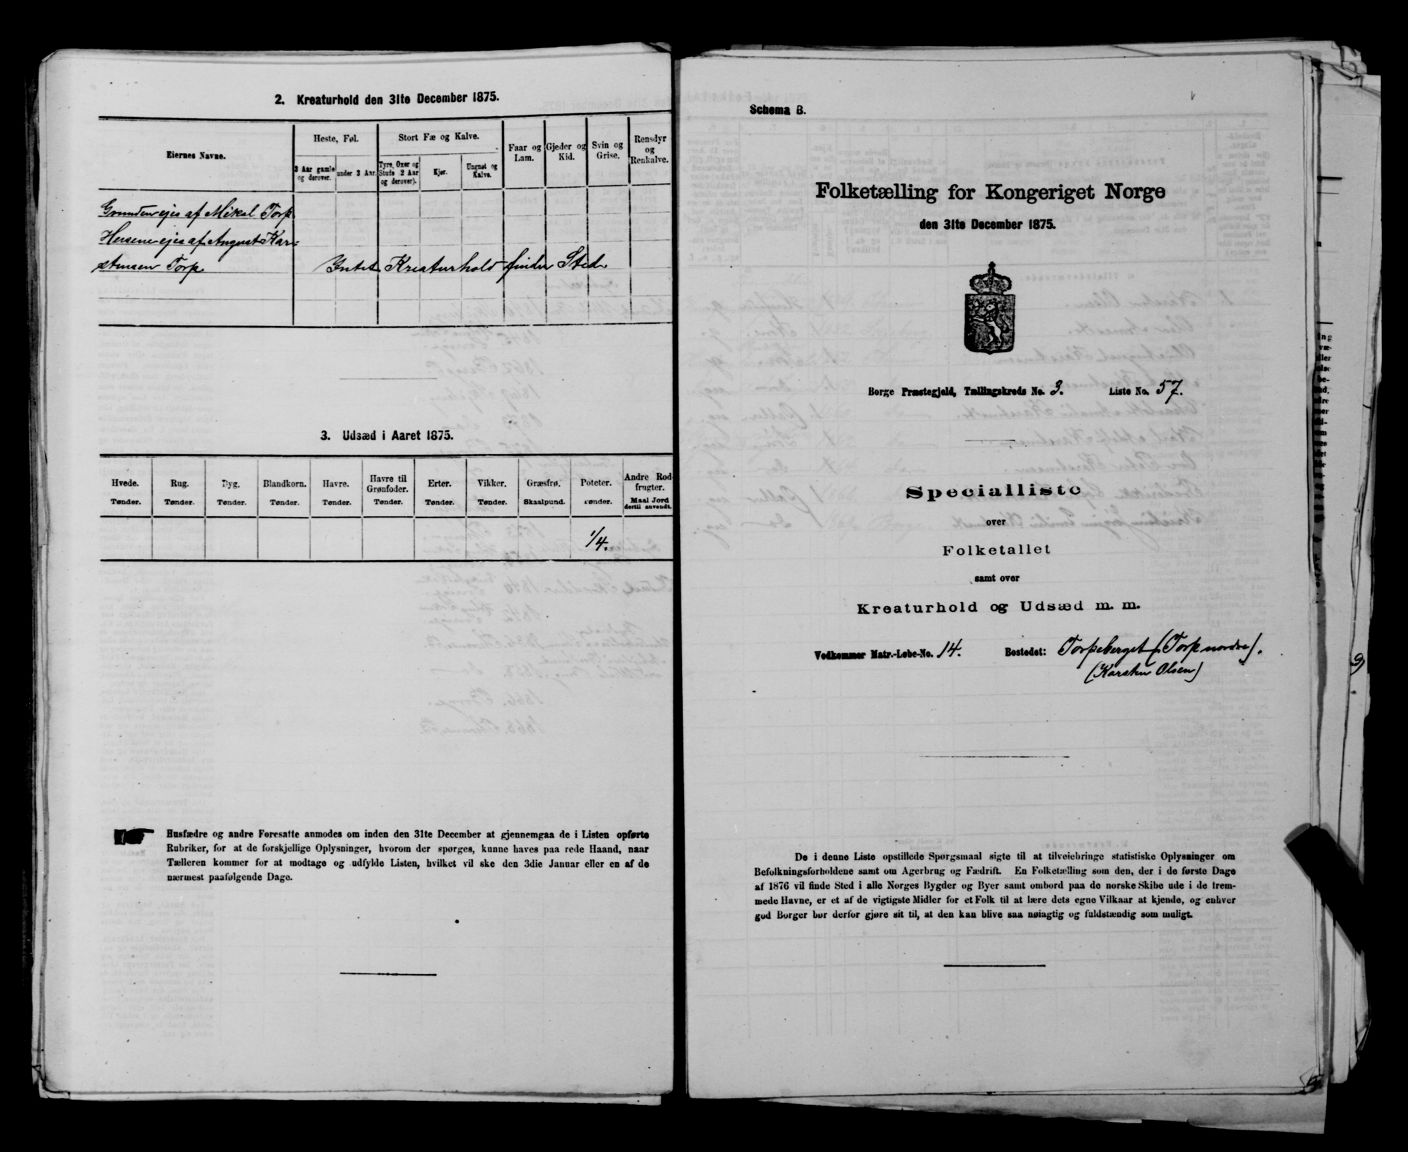 2. Kreaturhold den 31te December 1875.
Eiernes Navne.
Heste, Føl.
3 Aar gamle og derover.
under 3 Aar.
Stort Fæ og Kalve.
Tyre, Oxer og Stude 2 Aar og derover).
Kjør.
Ungnøt og Kalve.
Faar og Lam.
Gjeder og Kid.
Svin og Grise.
Rensdyr og Renkalve.
Grunden ejes af Mikal Torp
Husene ejes af August Kar-
stensen Torp
Intet Kreaturhold finder Sted
3. Udsæd i Aaret 1875.
Hvede. Tønder.
Rug. Tønder.
Byg. Tønder.
Blandkorn. Tønder.
Havre. Tønder.
Havre til Grønfoder. Tønder.
Erter. Tønder.
Vikker. Tønder.
Græsfrø. Skaalpund.
Poteter. Tønder.
Andre Rodfrugter. Maal Jord dertil anvendt.
1/4.
Husfædre og andre Foresatte anmodes om inden den 31te December at gjennemgaa de i Listen opførte
Rubriker, for at de forskjellige Oplysninger, hvorom der spørges, kunne haves paa rede Haand, naar
Tælleren kommer for at modtage og udfylde Listen, hvilket vil ske den 3die Januar eller en af de
nærmest paafølgende Dage.
Schema B.
Folketælling for Kongeriget Norge
den 31te December 1875.
Borge Præstegjeld, Tællingskreds No. 3. Liste No. 57.
Specialliste
over
Folketallet
samt over
Kreaturhold og Udsæd m. m.
Vedkommer Matr.-Løbe-No. 14. Bostedet: Torpeberget (Torp nordre).
(Karsten Olsen)
De i denne Liste opstillede Spørgsmaal sigte til at tilveiebringe statistiske Oplysninger om
Befolkningsforholdene samt om Agerbrug og Fædrift. En Folketælling som den, der i de første Dage
af 1876 vil finde Sted i alle Norges Bygder og Byer samt ombord paa de norske Skibe ude i de frem-
mede Havne, er et af de vigtigste Midler for et Folk til at lære dets egne Vilkaar at kjende, og enhver
god Borger bør derfor gjøre sit til, at den kan blive saa nøiagtig og fuldstændig som muligt.